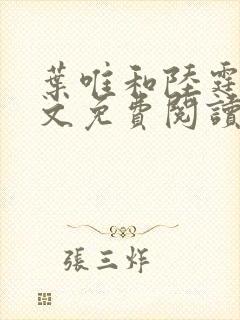 葉唯和陸霆
文免費閱讀
張三炸